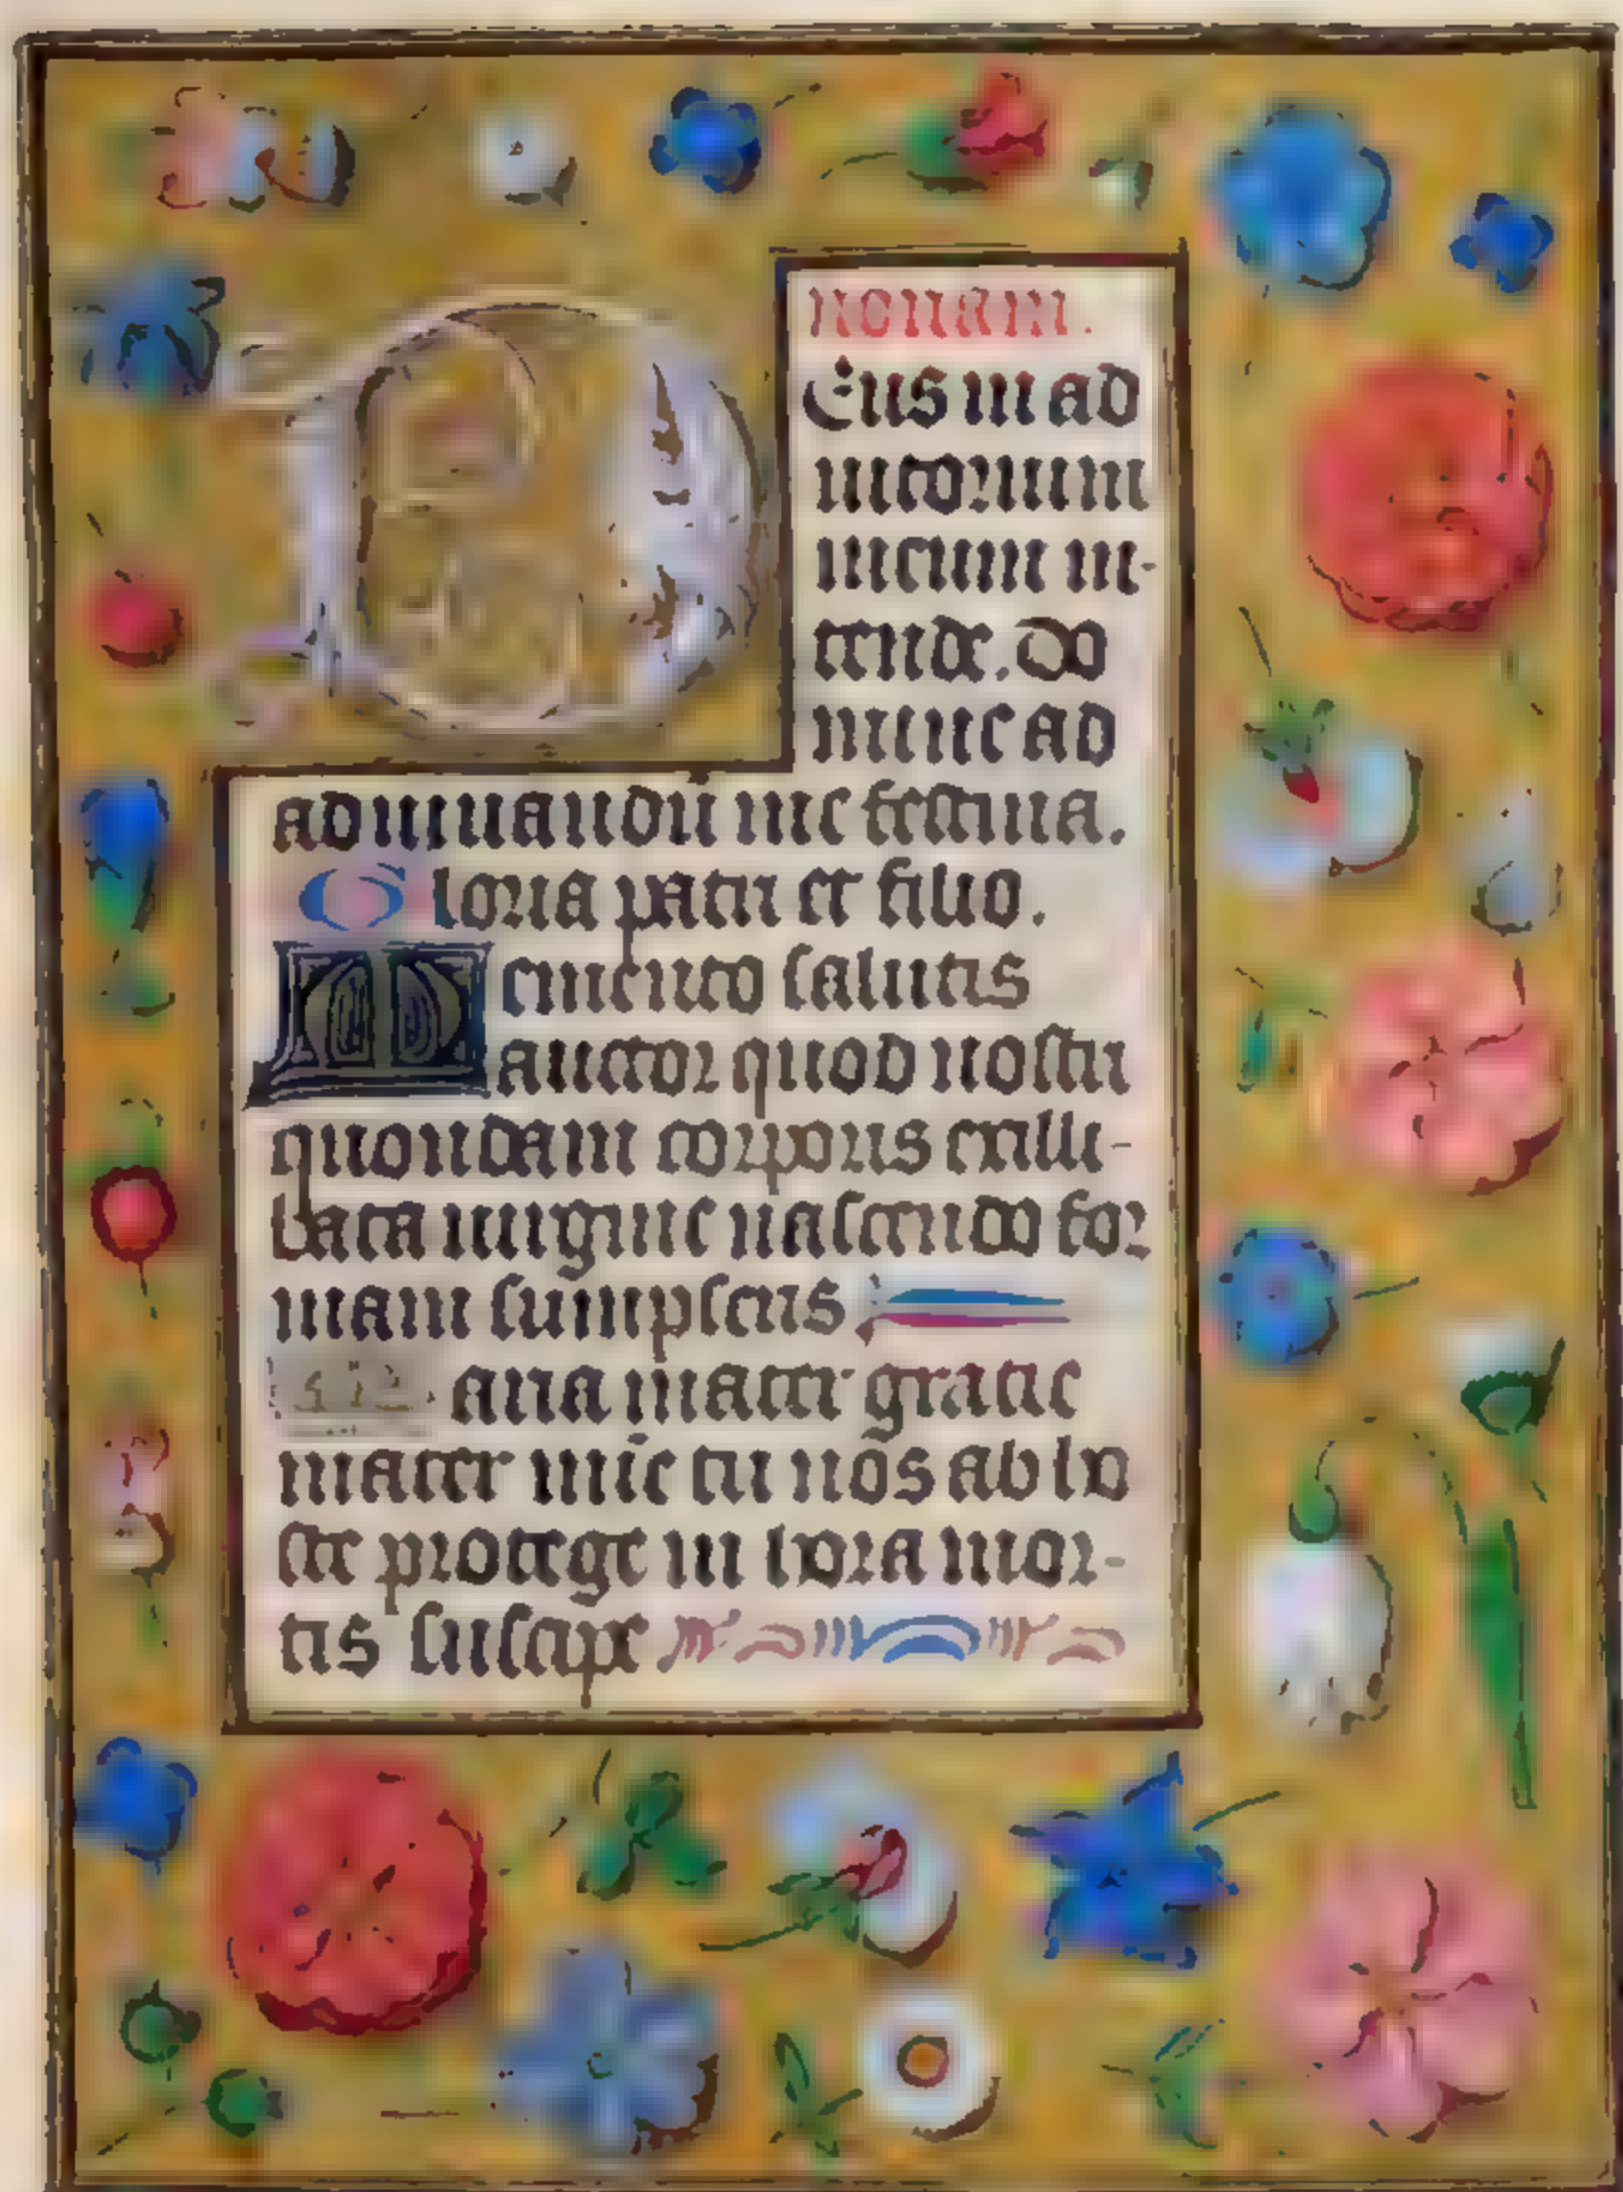 nonam.
Deus in ad
iutorium
meum in-
tende. Do
mine ad
adiuuandū me festina.
Gloria patri et filio.
Memento salutis
auctor quod nostri
quondam corporis ex illi-
bata uirgine nascendo for
mam sumpseris
Maria mater gratie
mater mīe tu nos ab ho
ste protege in hora mor-
tis suscipe